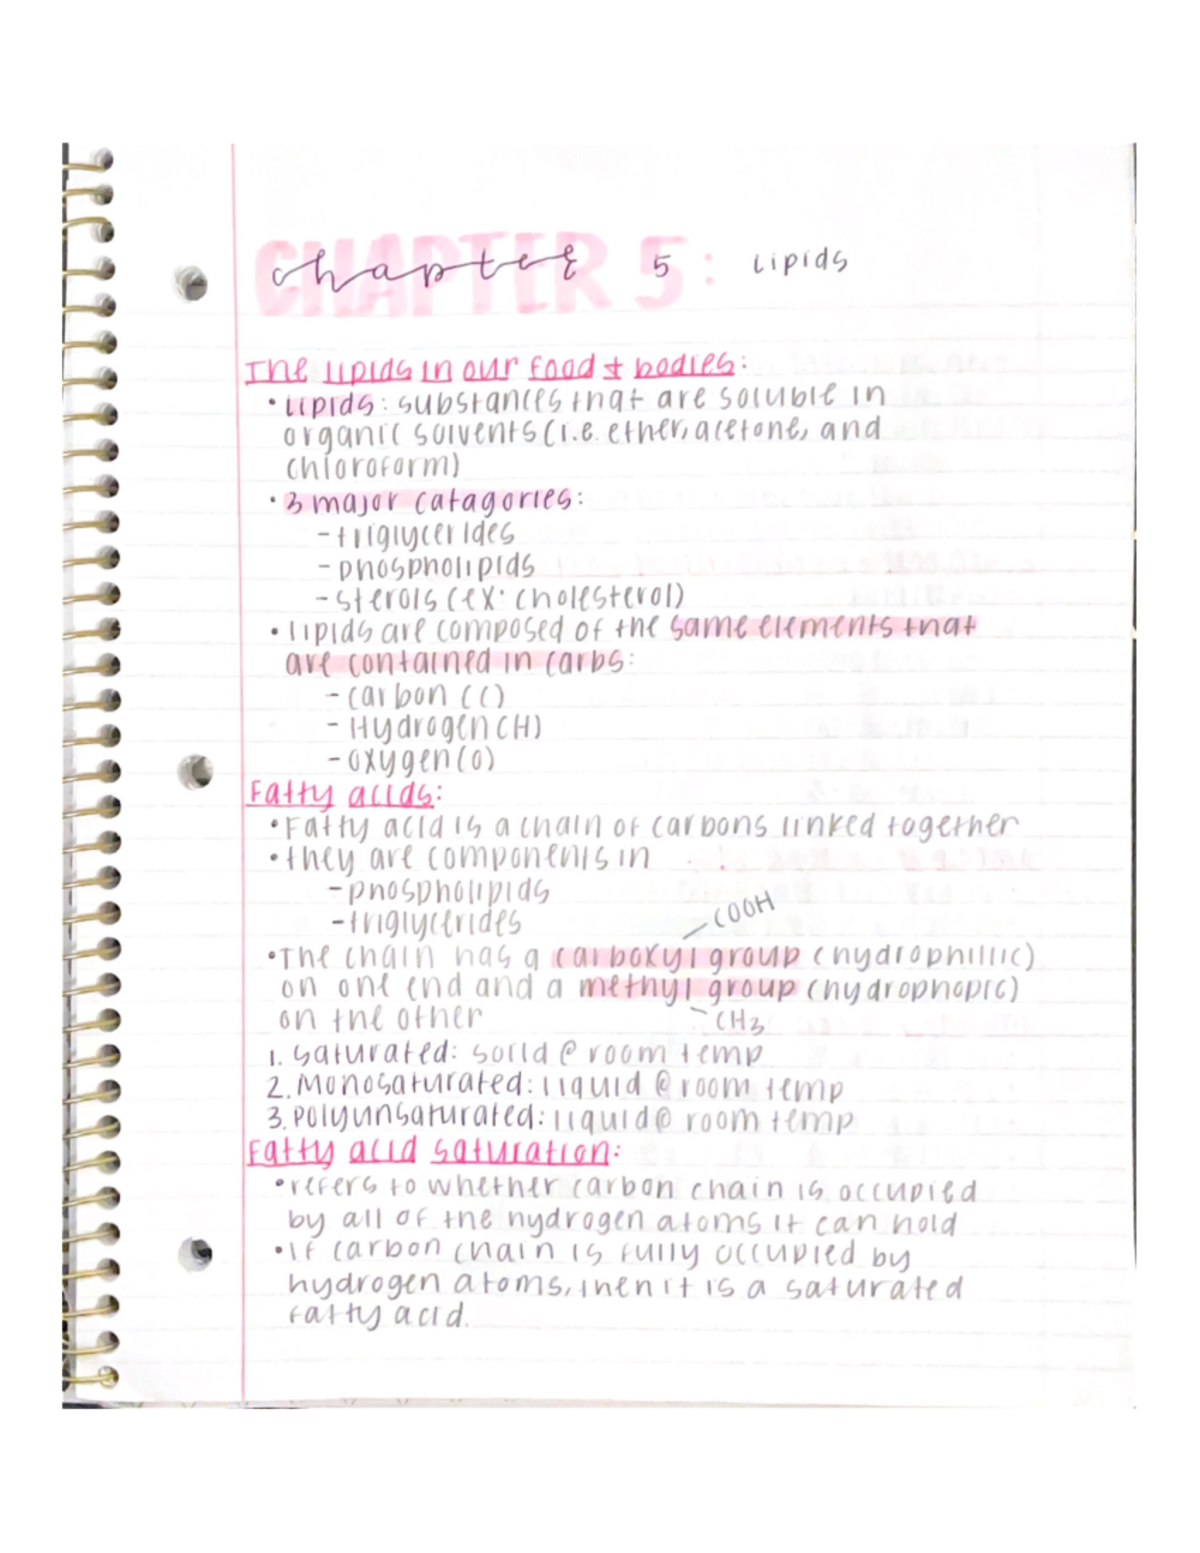 CHAPTER 5: chapter 5 Lipids
The lipids in our food & bodies:
• Lipids: substances that are soluble in
organic solvents (i.e. ether, acetone, and
chloroform)
• 3 major catagories:
- triglycerides
- phospholipids
- sterols (ex: cholesterol)
• lipids are composed of the same elements that
are contained in carbs:
- carbon (C)
- Hydrogen (H)
- oxygen (O)
Fatty acids:
• Fatty acid is a chain of carbons linked together
• they are components in
- phospholipids
- triglycerides
COOH
• The chain has a carboxyl group (hydrophillic)
on one end and a methyl group (hydrophopic)
on the other
CH3
1. saturated: solid @ room temp
2. Monosaturated: liquid @ room temp
3. Polyunsaturated: liquid @ room temp
Fatty acid saturation:
• refers to whether carbon chain is occupied
by all of the hydrogen atoms it can hold
• if carbon chain is fully occupied by
hydrogen atoms, then it is a saturated
fatty acid.